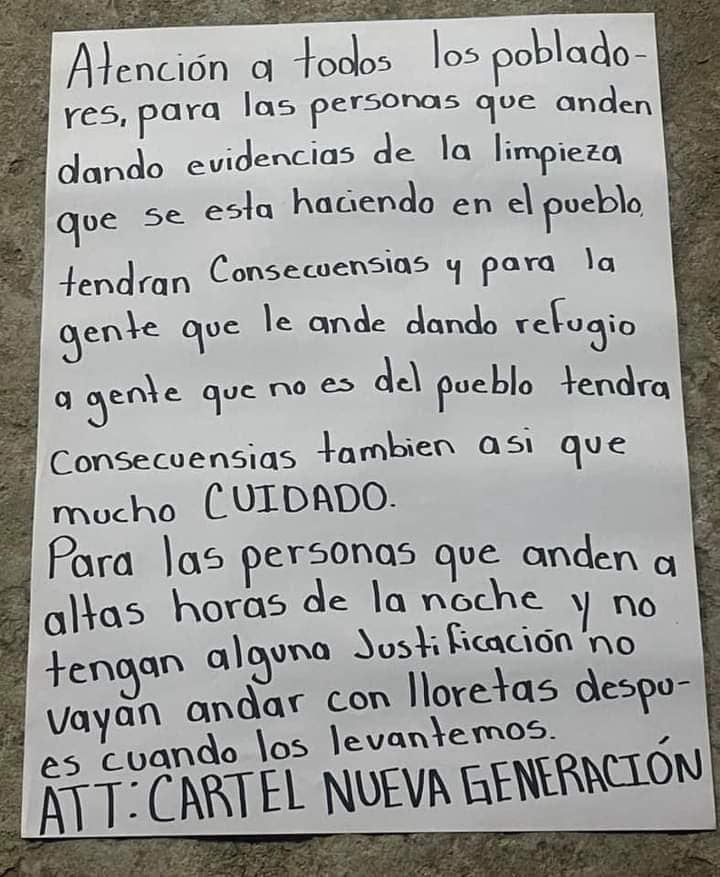 Atención a todos los poblado-
res, para las personas que anden
dando evidencias de la limpieza
que se esta haciendo en el pueblo,
tendran Consecuensias y para la
gente que le ande dando refugio
a gente que no es del pueblo tendra
Consecuensias tambien asi que
mucho CUIDADO.
Para las personas que anden a
altas horas de la noche y no
tengan alguna Justificación no
vayan andar con lloretas despu-
es cuando los levantemos.
ATT: CARTEL NUEVA GENERACIÓN